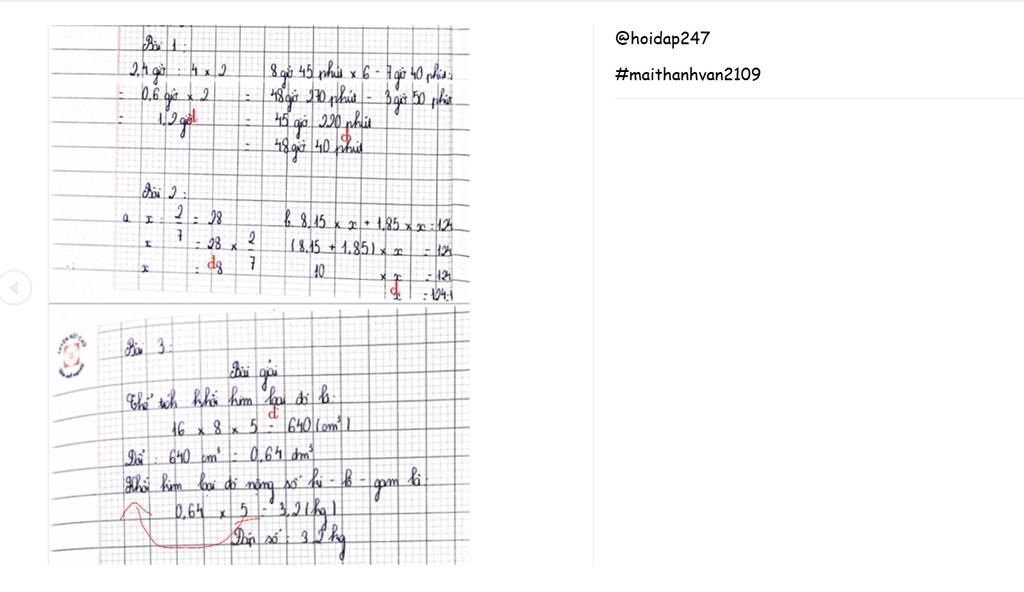 Bài 1:
2,4 giờ : 4 x 2
= 0,6 giờ x 2
= 1,2 giờ
8 giờ 45 phút x 6 - 7 giờ 40 phút :
= 48 giờ 270 phút - 3 giờ 50 phút
= 45 giờ 220 phút
= 48 giờ 40 phút
Bài 2:
a x : 2/7 = 28
x = 28 x 2/7
x = 8
b 8,15 x x + 1,85 x x = 124
(8,15 + 1,85) x x = 124
10 x x = 124
x = 124:1
Bài 3:
Bài giải
Thể tích khối kim loại đó là:
16 x 8 x 5 = 640 (cm³)
Đổi : 640 cm³ = 0,64 dm³
Khối kim loại đó nặng số ki-lô-gam là:
0,64 x 5 = 3,2 (kg)
Đáp số : 3,2 kg
@hoidap247
#maithanhvan2109